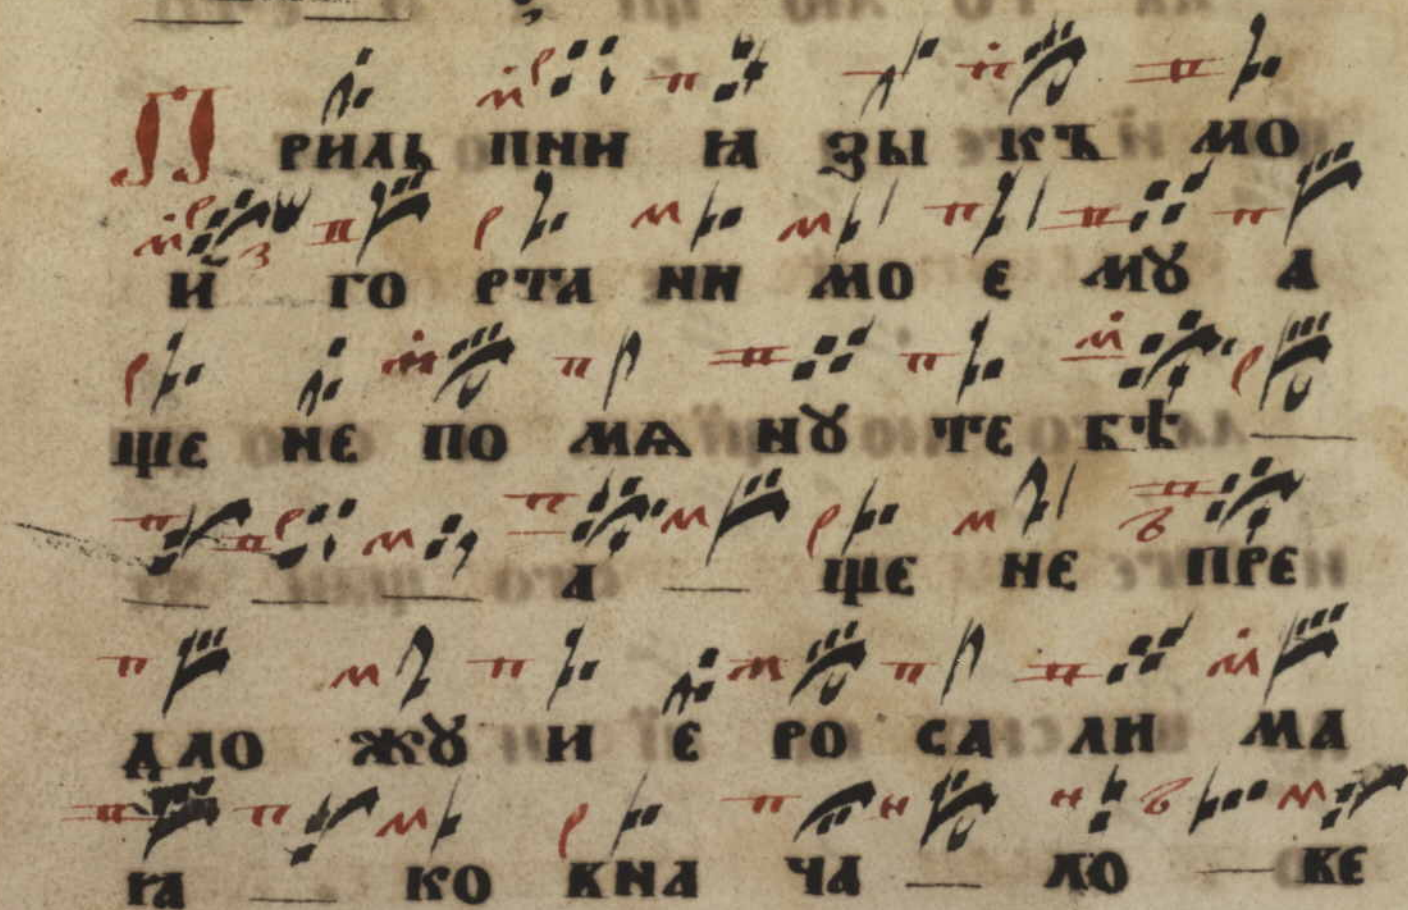 Прильпни ꙗзыкъ мо
й гортани моемꙋ а
ще не помѧнꙋ тебѣ
а ще не пре
дложꙋ иеросалима
ꙗ ко вна ча ло ве